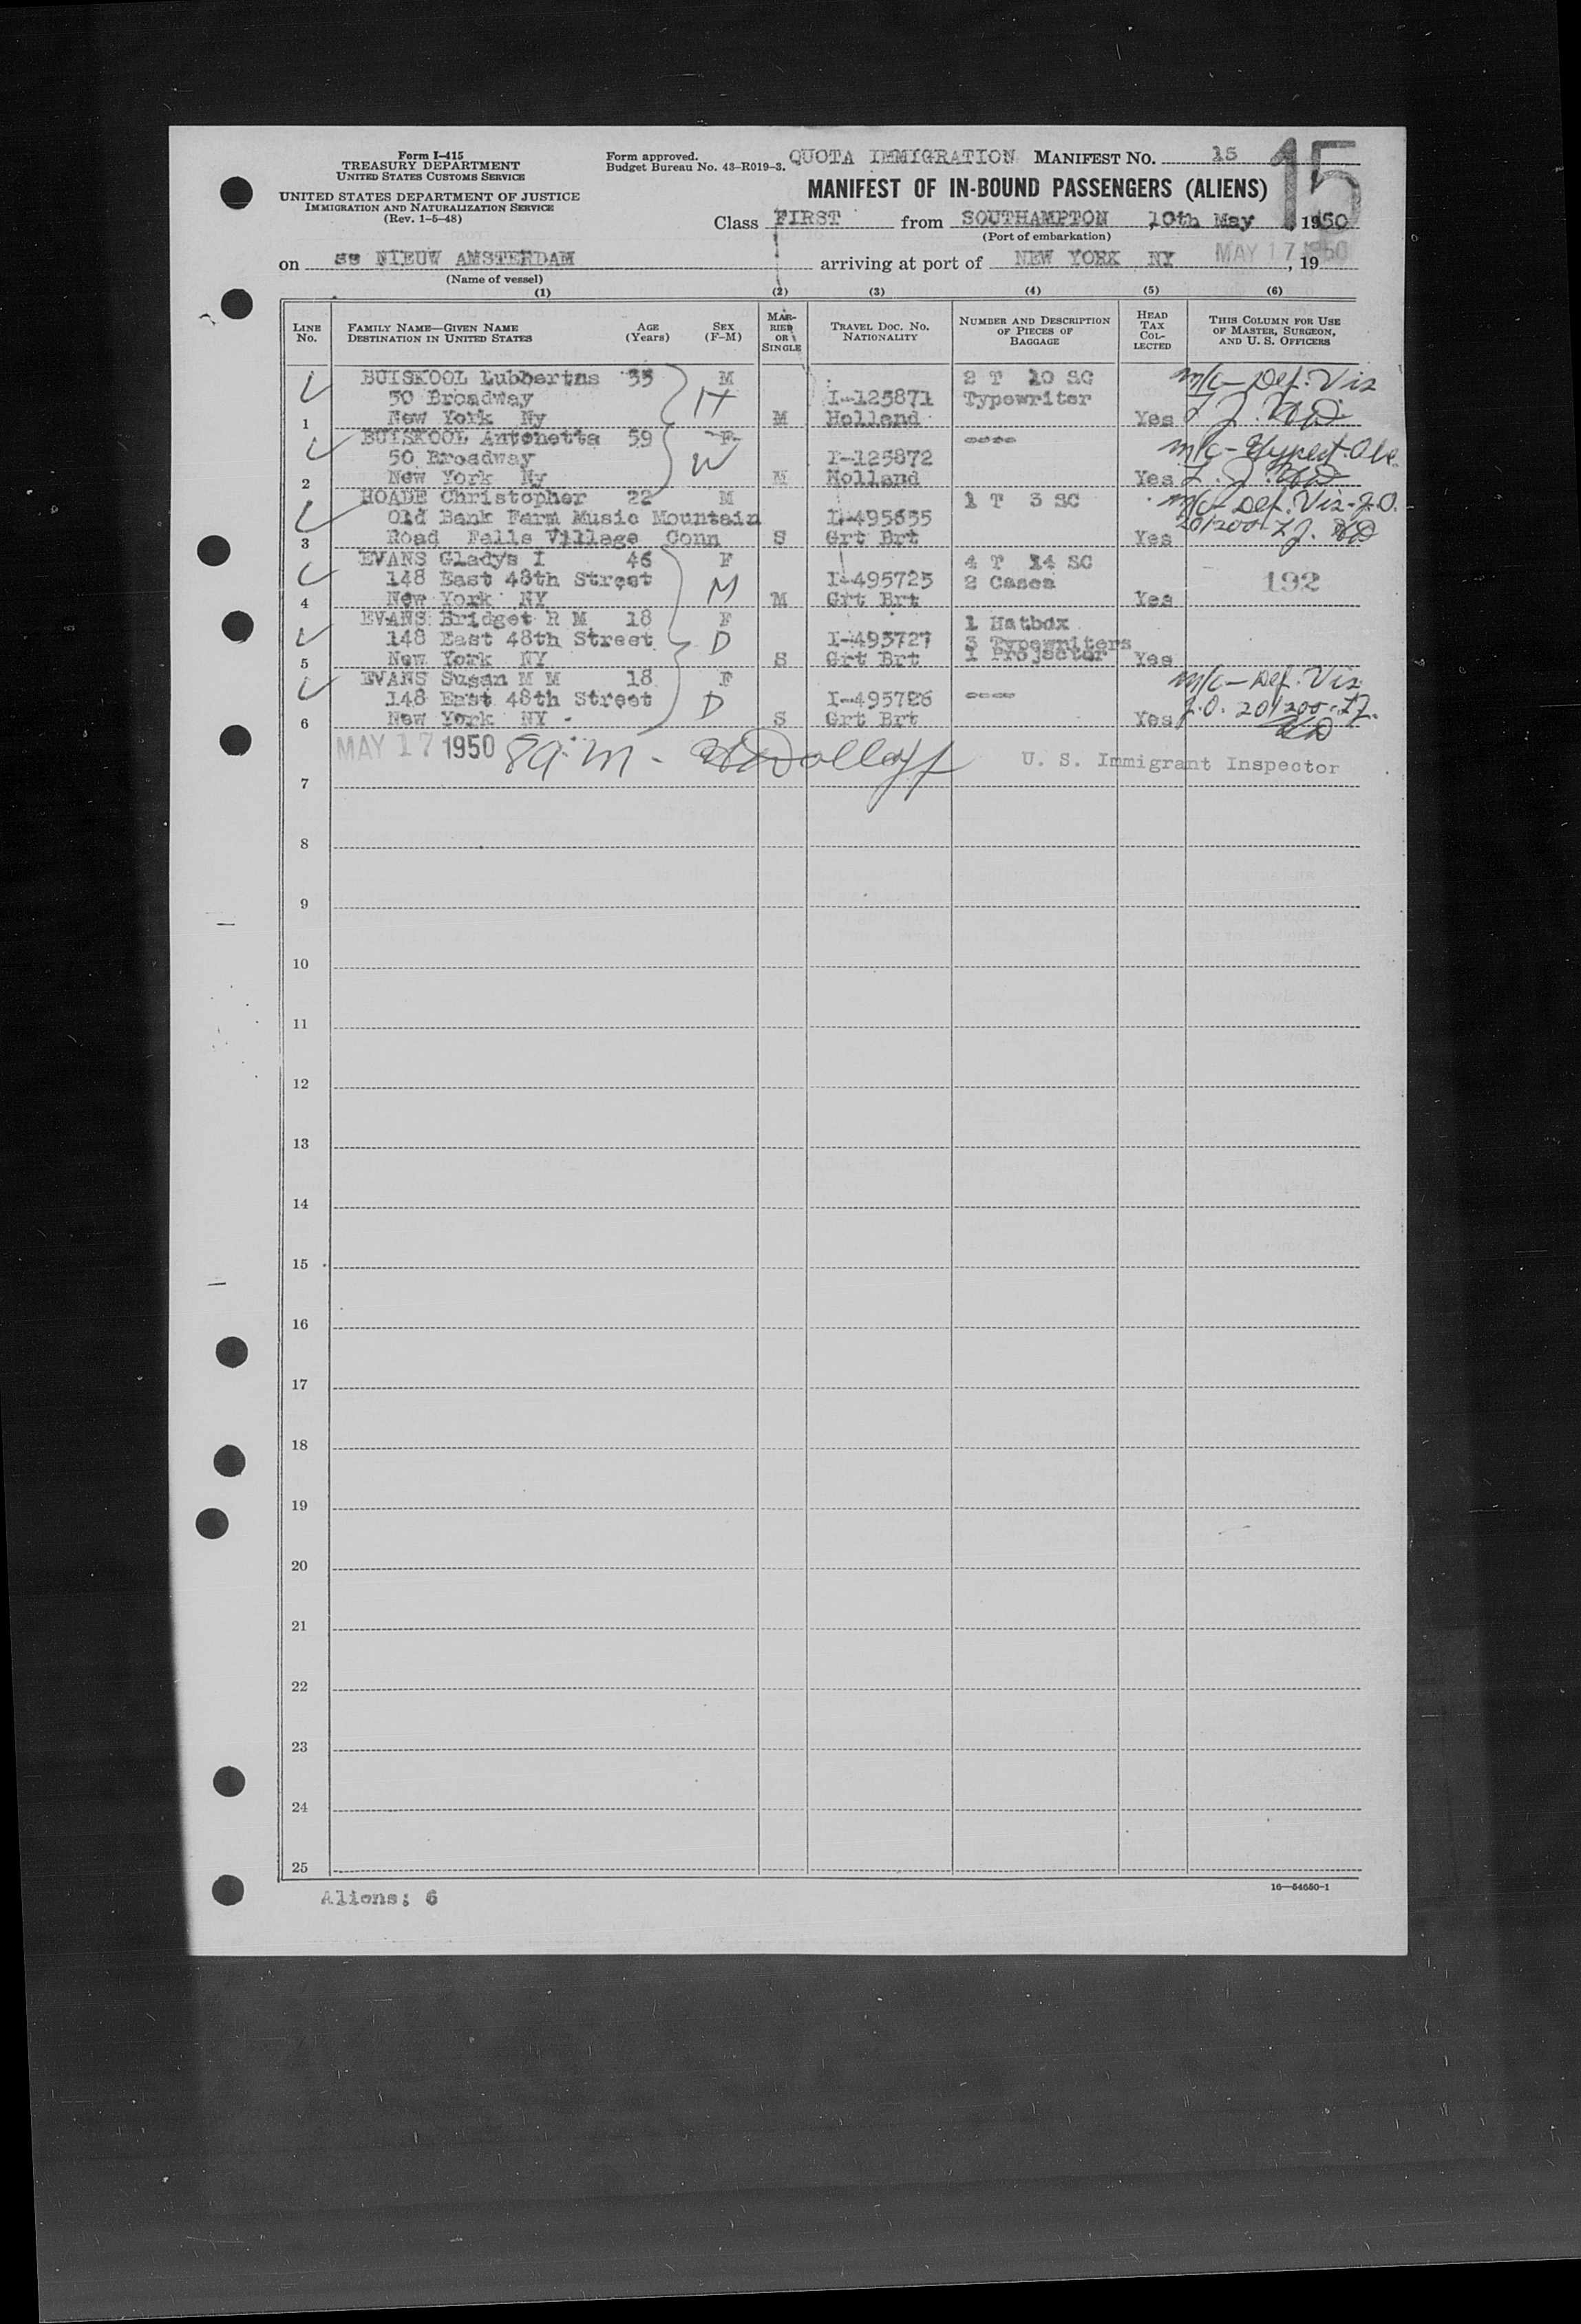 Form I-415
TREASURY DEPARTMENT
UNITED STATES CUSTOMS SERVICE
UNITED STATES DEPARTMENT OF JUSTICE
IMMIGRATION AND NATURALIZATION SERVICE
(Rev. 1-5-48)
Form approved.
Budget Bureau No. 43-R019-3.
QUOTA IMMIGRATION MANIFEST NO. 15
15
MANIFEST OF IN-BOUND PASSENGERS (ALIENS)
Class FIRST from SOUTHAMPTON 10th May, 1950
(Port of embarkation)
on ss NIEUW AMSTERDAM arriving at port of NEW YORK NY MAY 17 1950, 19
(Name of vessel)
(1) (2) (3) (4) (5) (6)
LINE No. FAMILY NAME—GIVEN NAME DESTINATION IN UNITED STATES AGE (Years) SEX (F-M) MARRIED OR SINGLE TRAVEL DOC. NO. NATIONALITY NUMBER AND DESCRIPTION OF PIECES OF BAGGAGE HEAD TAX COLLECTED THIS COLUMN FOR USE OF MASTER, SURGEON, AND U. S. OFFICERS
BUISKOOL Lubbertns 55 M 2 T 10 SC m/c - Def. Vis
50 Broadway H I-125871 Typewriter
1 New York Ny M Holland Yes
BUISKOOL Antonetta 59 F ---- m/c -
50 Broadway W I-125872
2 New York Ny M Holland Yes
HOADE Christopher 22 M 1 T 3 SC m/c - Def. Vis - J.O.
Old Bank Farm Music Mountain I-495635 20/200
3 Road Falls Village Conn S Grt Brt Yes
EVANS Gladys I 46 F 4 T 14 SC
148 East 48th Street M I-495725 2 Cases 192
4 New York NY M Grt Brt Yes
EVANS Bridget R M 18 F 1 Hatbox
148 East 48th Street D I-495727 3 Typewriters
5 New York NY S Grt Brt 1 Projector Yes
EVANS Susan M M 18 F m/c - Def. Vis
148 East 48th Street D I-495726 ---- J.O. 20/200
6 New York NY S Grt Brt Yes
MAY 17 1950 8 a.m. - U. S. Immigrant Inspector
7
8
9
10
11
12
13
14
15
16
17
18
19
20
21
22
23
24
25
Aliens: 6
16—54650-1